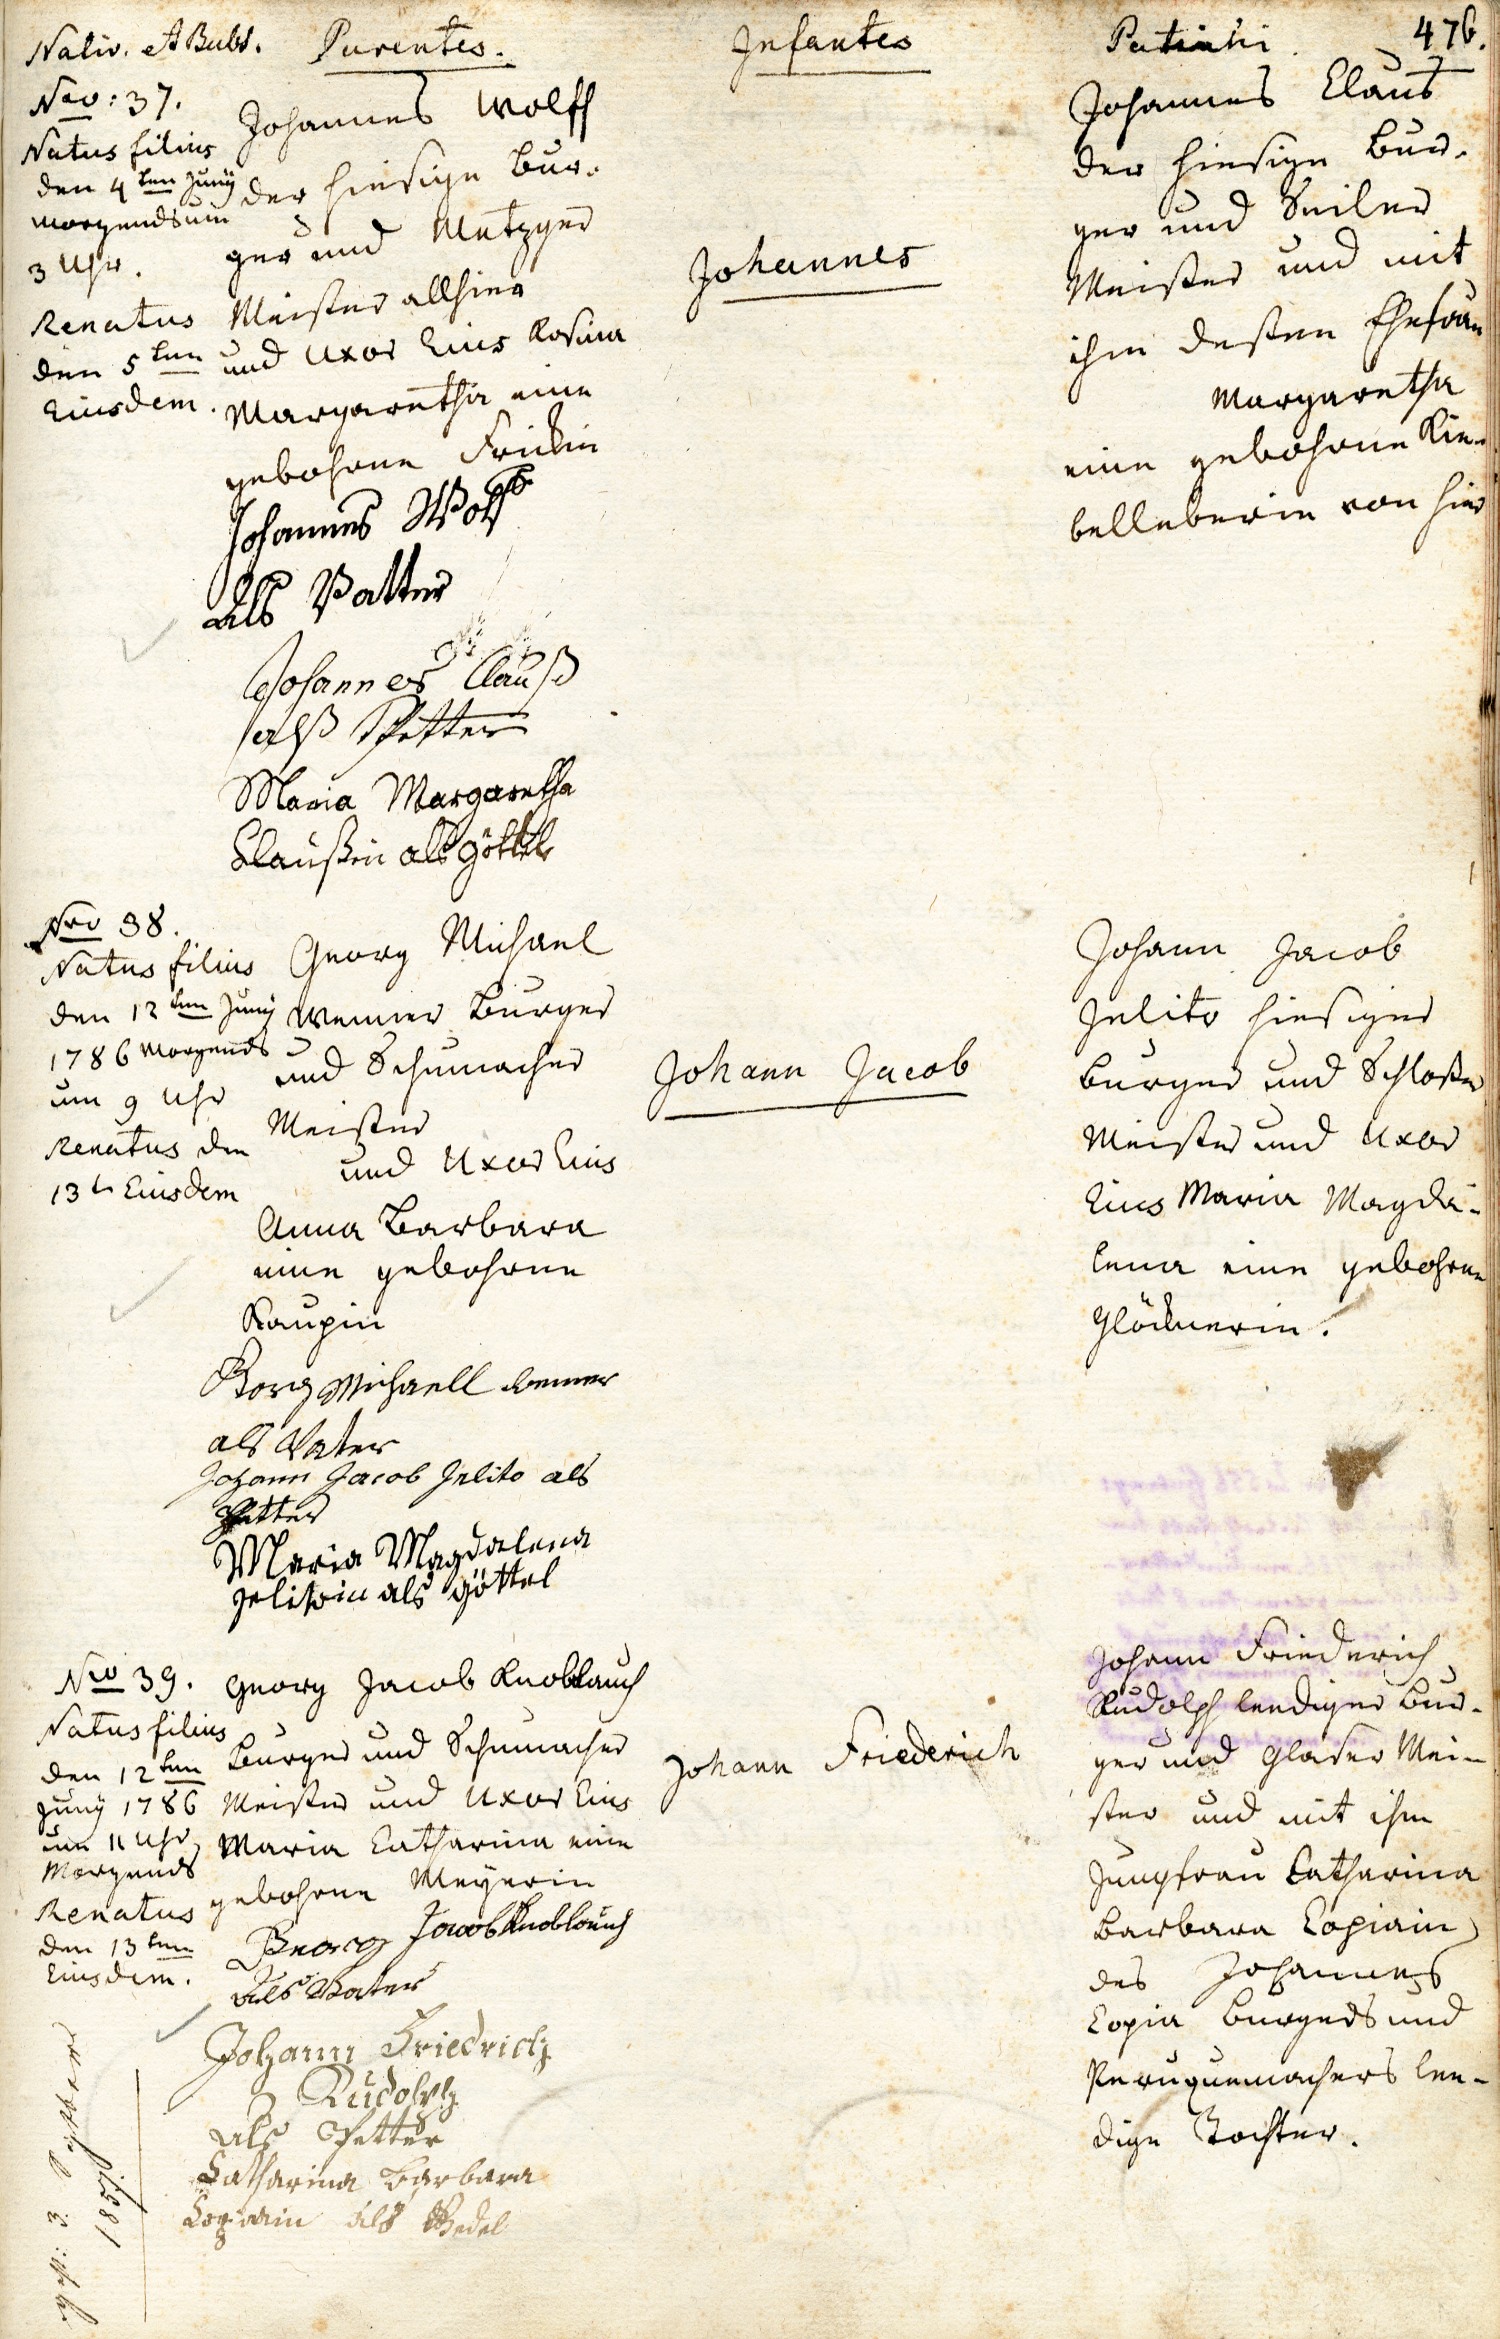 Nativ. et Babt. Parentes. Infantes Patrini. 476.
Nro: 37.
Natus filius
den 4ten Juny
morgends um
3 Uhr.
Renatus
den 5ten
Eiusdem.
Johannes Wolff
der hiesige Bur-
ger und Metzger
Meister allhier
und Uxor Eius Rosina
Margaretha eine
gebohrne Frickin
Johannes Wolff
als Vatter
Johannes Clauß
alß Pfetter
Maria Margaretha
Claußin als göttel
Johannes
Johannes Claus
der hiesige Bur-
ger und Seiler
Meister und mit
ihm desten Ehefrau
Margaretha
eine gebohrne Kie-
belleberin von hier
Nro 38.
Natus filius
den 12ten Juny
1786 Morgends
um 9 Uhr
Renatus den
13t Eiusdem
Georg Michael
Wenner Burger
und Schumacher
Meister
und Uxor Eius
Anna Barbara
eine gebohrne
Raupin
Georg Michaell Wenner
als Vater
Johann Jacob Jelito als
Pfetter
Maria Magdalena
Jelitoin als göttel
Johann Jacob
Johann Jacob
Jelito hiesiger
Burger und Schloßer
Meister und Uxor
Eius Maria Magda-
lena eine gebohrne
Glöcknerin.
Nro 39.
Natus filius
den 12ten
Juny 1786
um 11 Uhr
Morgends
Renatus
den 13ten
Eiusdem.
Georg Jacob Knoblauch
Burger und Schumacher
Meister und Uxor Eius
Maria Catharina eine
gebohrne Meyerin
Georg Jacob Knoblauch
als Vater
Johann Friedrich
Rudolph
als Pfetter
Catharina Barbara
Copiain als Gedel
Johann Friederich
Johann Friederich
Rudolph leediger Bur-
ger und Glaser Mei-
ster und mit ihm
Jungfrau Catharina
Barbara Copiain
des Johannes
Copia Burgers und
Peruquemachers lee-
dige Tochter.
gest: 3.
1857